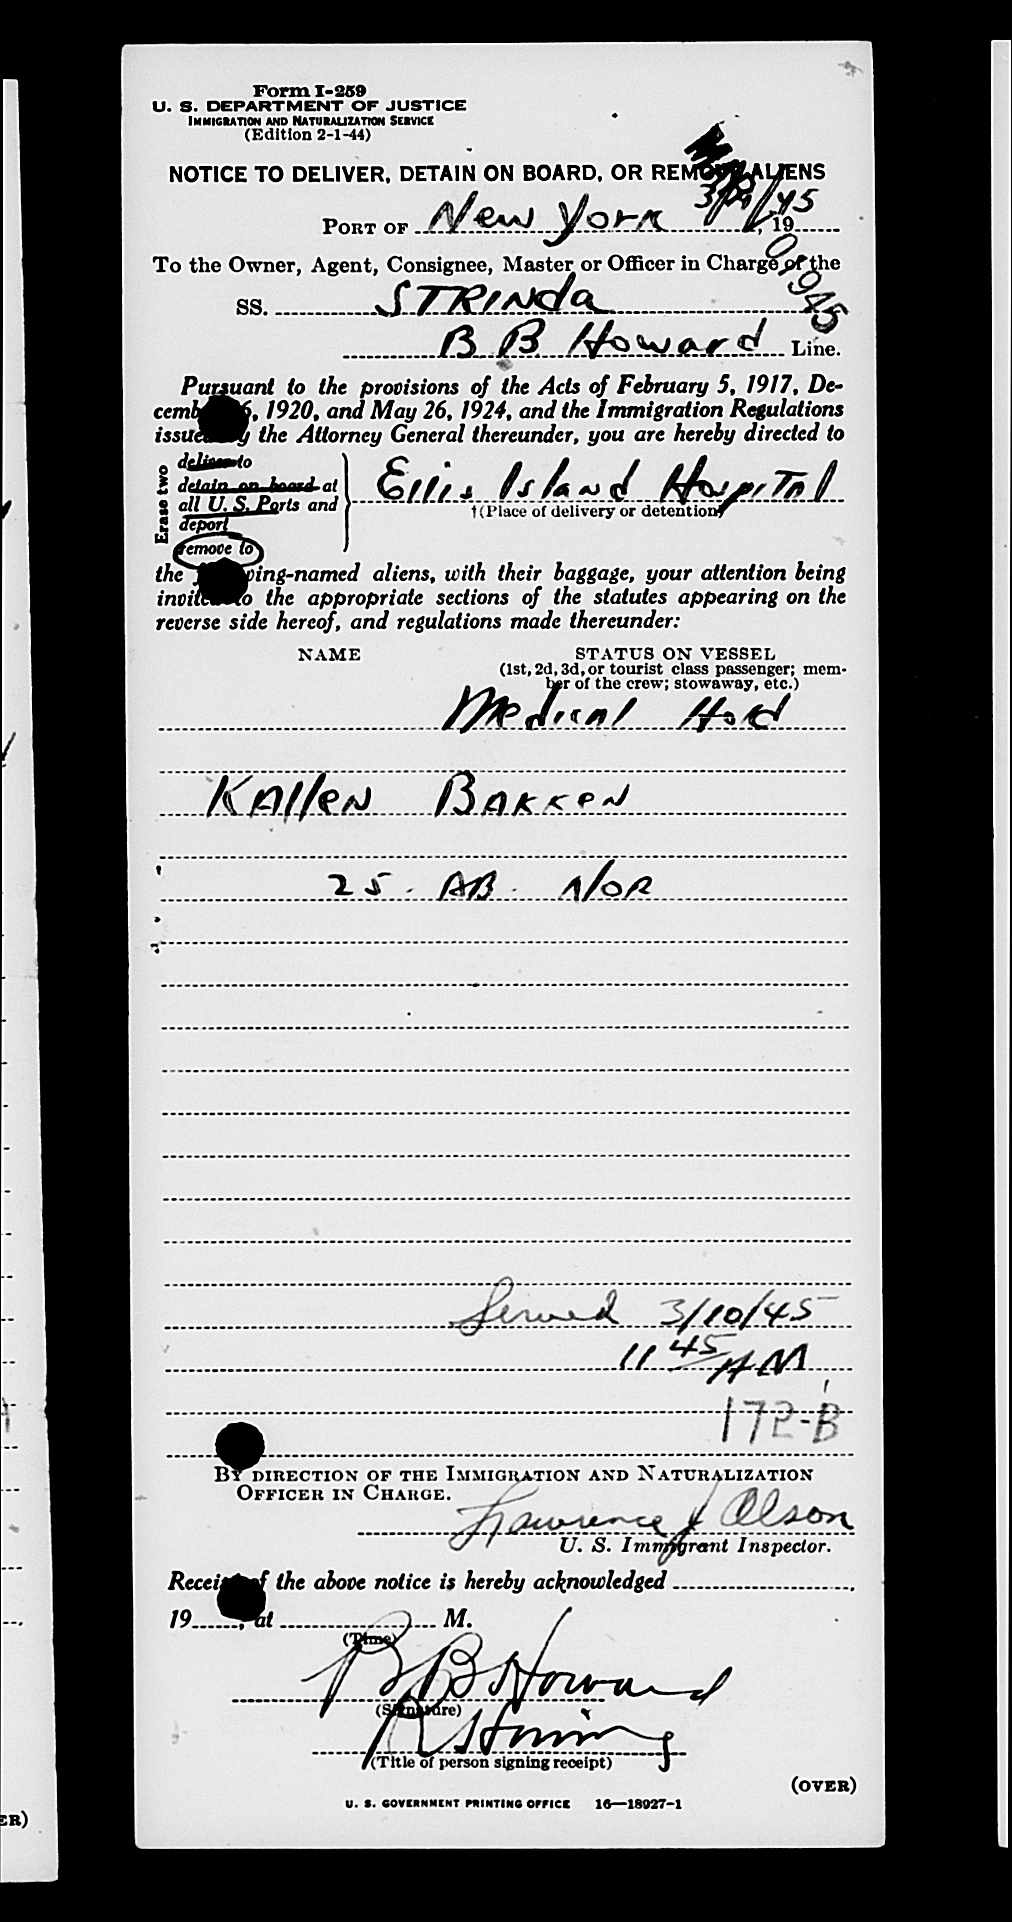 Form I-259
U. S. DEPARTMENT OF JUSTICE
IMMIGRATION AND NATURALIZATION SERVICE
(Edition 2-1-44)
NOTICE TO DELIVER, DETAIN ON BOARD, OR REMOVE ALIENS
PORT OF New York 3/ /45, 19
To the Owner, Agent, Consignee, Master or Officer in Charge of the
SS. STRINDA
B B Howard Line.
Pursuant to the provisions of the Acts of February 5, 1917, De-
cemb 6, 1920, and May 26, 1924, and the Immigration Regulations
issue y the Attorney General thereunder, you are hereby directed to
Erase two
deliver to
detain on board at
all U. S. Ports and
deport
remove to
Ellis Island Hospital
†(Place of delivery or detention)
the ving-named aliens, with their baggage, your attention being
invite to the appropriate sections of the statutes appearing on the
reverse side hereof, and regulations made thereunder:
NAME STATUS ON VESSEL
(1st, 2d, 3d, or tourist class passenger; mem-
ber of the crew; stowaway, etc.)
Medical Hold
KAllEN BAKKEN
25. AB. NOR
Served 3/10/45
11 45/AM
172-B
BY DIRECTION OF THE IMMIGRATION AND NATURALIZATION
OFFICER IN CHARGE.
Lawrence J Olson
U. S. Immigrant Inspector.
Recei of the above notice is hereby acknowledged
19 , at M.
(Time)
B B Howard
(Signature)
(Title of person signing receipt)
(OVER)
U. S. GOVERNMENT PRINTING OFFICE 16—18927-1
ER)